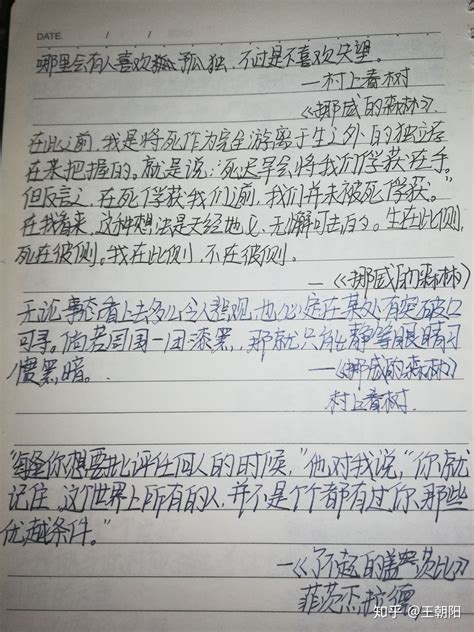 DATE. / /
哪里会有人喜欢孤孤独,不过是不喜欢失望。
—村上春树
《挪威的森林》.
在此之前,我是将死作为完全游离于生之外的独立存
在来把握的。就是说:"死迟早会将我们俘获在手。
但反言之,在死俘获我们前,我们并未被死俘获。"
在我看来,这种想法是天经地义,无懈可击的。生在此侧,
死在彼侧。我在此侧,不在彼侧。
—《挪威的森林》
无论事态看上去多么令人悲观,也必定在某处有突破口
可寻。倘若周围一团漆黑,那就只能静等眼睛习
惯黑暗。 —《挪威的森林》
村上春树.
"每逢你想要批评任何人的时候,"他对我说,"你就
记住,这个世界上所有的人,并不是个个都有过你那些
优越条件。"
—《了不起的盖茨比》
菲茨杰拉德
知乎 @王朝阳